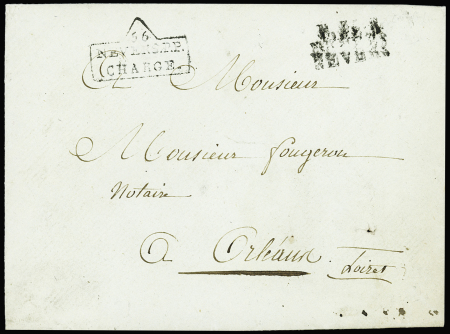 56
NEVERS.P.P.
CHARGÉ
NEVERS
A Monsieur
Monsieur fougeron
Notaire
a Orléans
Loiret